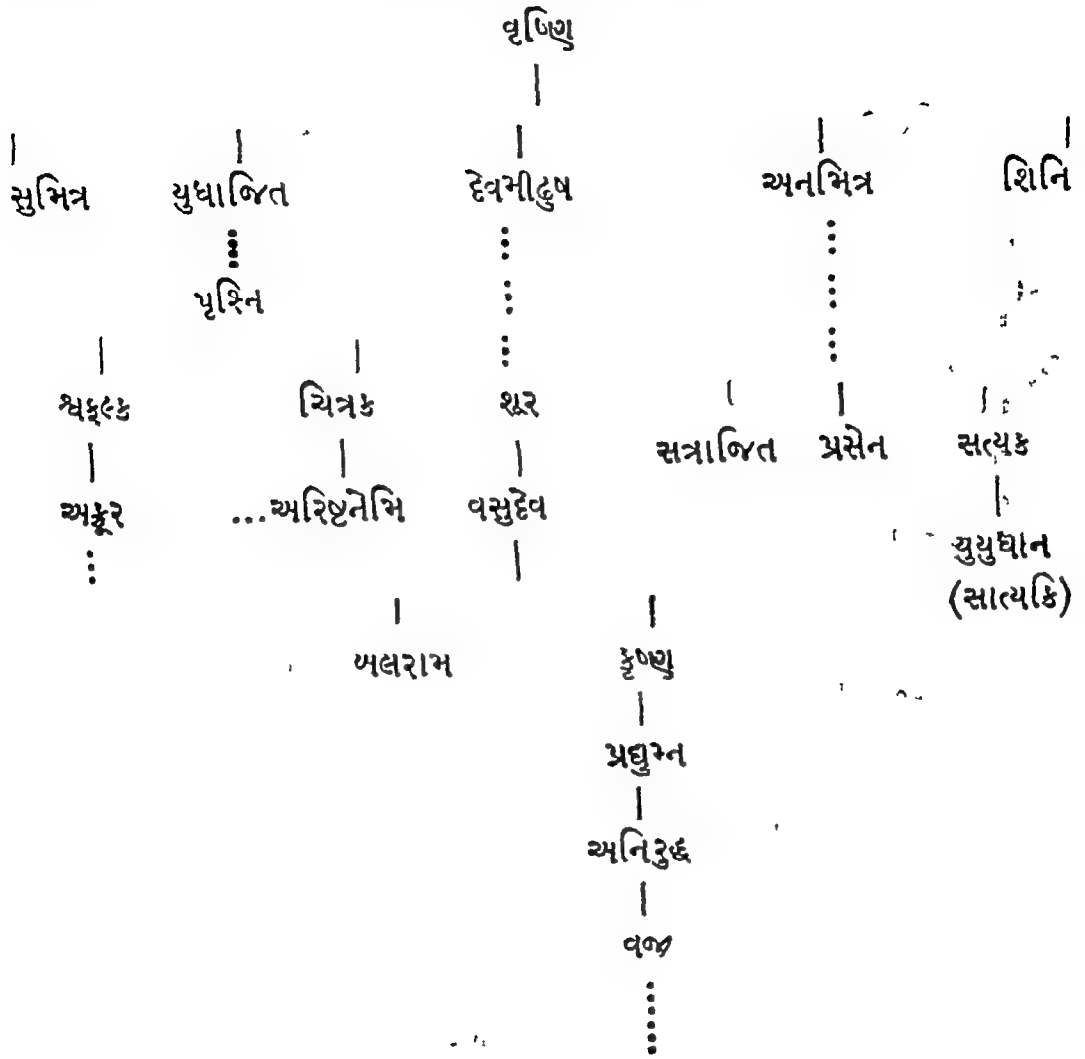 વૃષ્ણિ
સુમિત્ર યુધાજિત દેવમીઢુષ અનમિત્ર શિનિ
પૃશ્નિ
શ્વફલ્ક ચિત્રક શૂર
સત્રાજિત પ્રસેન સત્યક
અક્રૂર ...અરિષ્ટનેમિ વસુદેવ
યુયુધાન
(સાત્યકિ)
બલરામ કૃષ્ણ
પ્રદ્યુમ્ન
અનિરુદ્ધ
વજ્ર